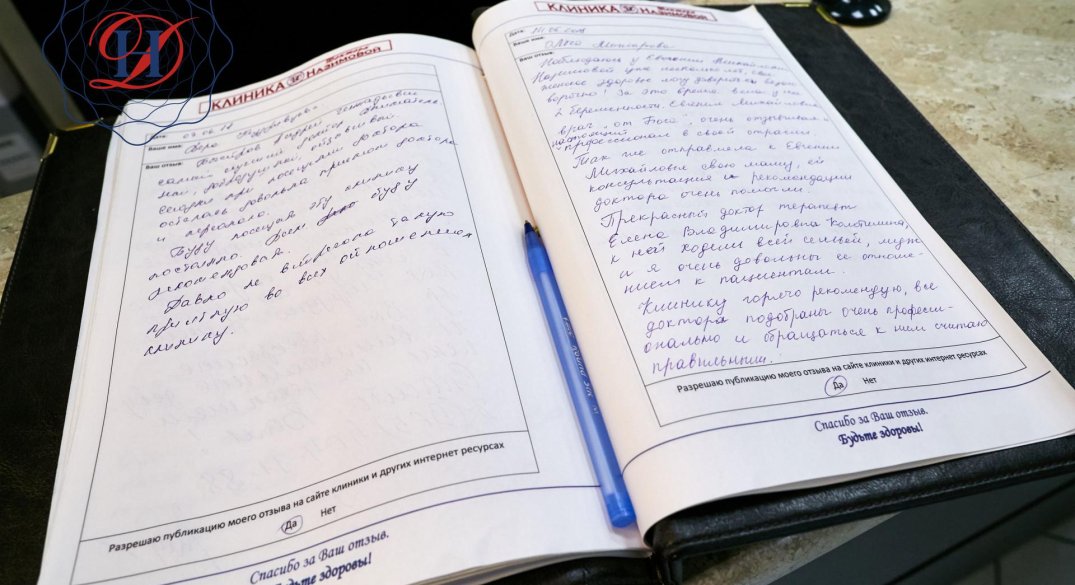 КЛИНИКА
Доктора
НАЗИМОВОЙ
Дата: 07.06.18
Ваше имя: Вера
Ваш отзыв:
самый лучший доктор
сегодня при посещении
осталась довольна приемом доктора
и персонала.
Буду посещать эту клинику
постоянно. Всем буду
рекомендовать.
Давно не встречала такую
приятную во всех отношениях
клинику.
Разрешаю публикацию моего отзыва на сайте клиники и других интернет ресурсах
Да Нет
Спасибо за Ваш отзыв.
Будьте здоровы!
КЛИНИКА
Доктора
НАЗИМОВОЙ
Дата:
Ваше имя:
Ваш отзыв:
Наблюдаюсь у Евгении Михайловны
Назимовой уже несколько лет, свое
женское здоровье могу доверить ей
За это время вела у меня
2 беременности. Евгения Михайловна
врач "от Бога", очень
настоящий
профессионал в своей отрасли
Так же отправляла к Евгении
Михайловне свою маму, ей
консультация и рекомендации
доктора очень помогли.
Прекрасный доктор терапевт
Елена Владимировна
к ней ходим всей семьей, муж
и я очень довольны ее отноше-
нием к пациентам.
Клинику горячо рекомендую, все
доктора подобраны очень професси-
онально и обращаться к ним считаю
правильным.
Разрешаю публикацию моего отзыва на сайте клиники и других интернет ресурсах
Да Нет
Спасибо за Ваш отзыв.
Будьте здоровы!